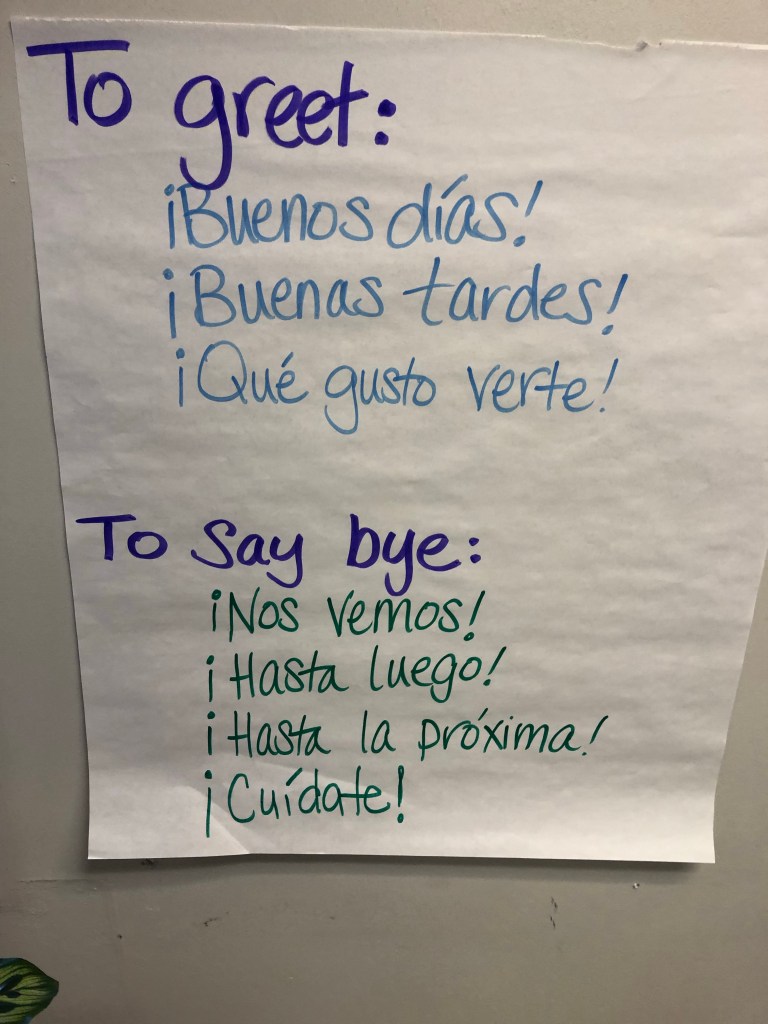 To greet:
¡Buenos días!
¡Buenas tardes!
¡Qué gusto verte!
To say bye:
¡Nos vemos!
¡Hasta luego!
¡Hasta la próxima!
¡Cuídate!